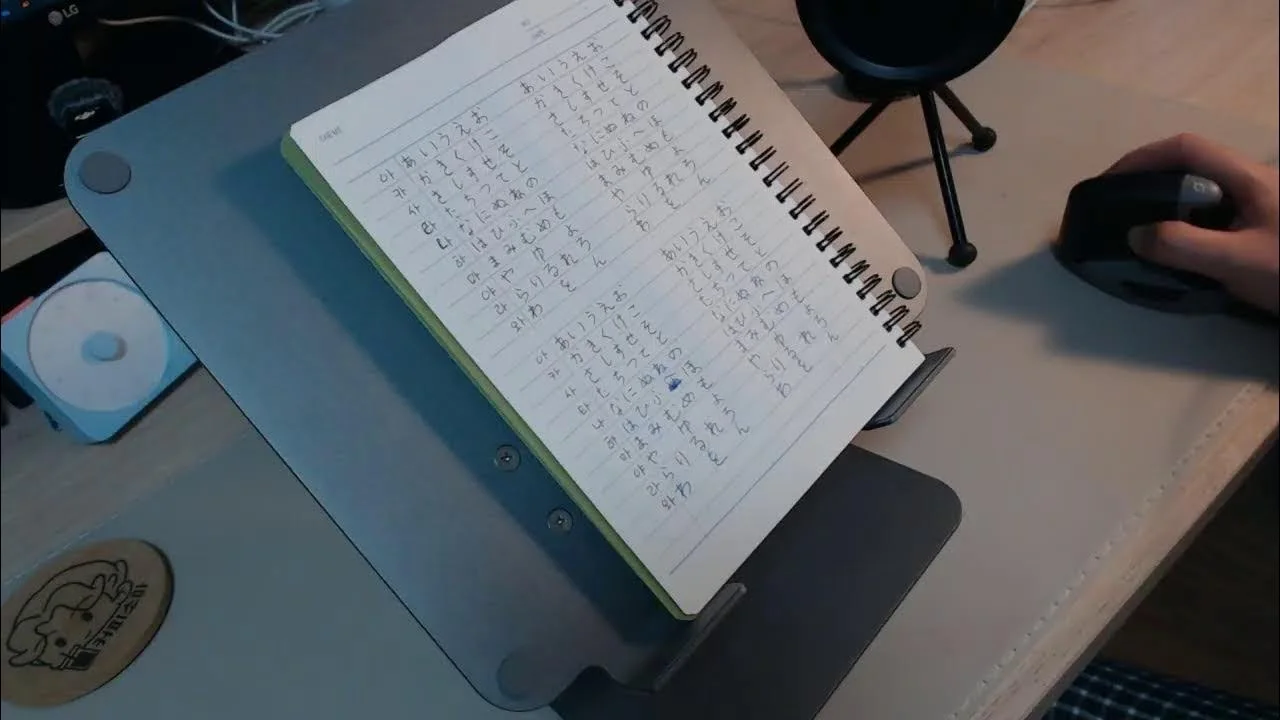 LG
MEMO
아 あいうえお
카 かきくけこ
사 さしすせそ
타 たちつてと
나 なにぬねの
하 はひふへほ
마 まみむめも
야 や ゆ よ
라 らりるれろ
와 わ を ん
あいうえお
かきくけこ
さしすせそ
たちつてと
なにぬねの
はひふへほ
まみむめも
や ゆ よ
らりるれろ
わ ん
아 あいうえお
카 かきくけこ
사 さしすせそ
타 たちつてと
나 なにぬねの
하 はひふ ほ
마 まみむめも
야 や ゆ よ
라 らりるれろ
와 わ を ん
あいうえお
かきくけこ
さしすせそ
たちつてと
なにぬねの
はひふへほ
まみむめも
や ゆ よ
らりるれろ
わ を ん